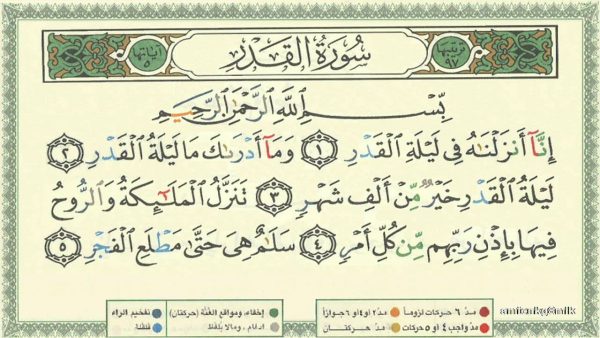 ترتيبها ٩٧
سُورَةُ القَدْرِ
آياتها ٥
بِسْمِ اللَّهِ الرَّحْمَٰنِ الرَّحِيمِ
إِنَّآ أَنزَلْنَٰهُ فِى لَيْلَةِ ٱلْقَدْرِ ١ وَمَآ أَدْرَىٰكَ مَا لَيْلَةُ ٱلْقَدْرِ ٢
لَيْلَةُ ٱلْقَدْرِ خَيْرٌ مِّنْ أَلْفِ شَهْرٍ ٣ تَنَزَّلُ ٱلْمَلَٰٓئِكَةُ وَٱلرُّوحُ
فِيهَا بِإِذْنِ رَبِّهِم مِّن كُلِّ أَمْرٍ ٤ سَلَٰمٌ هِىَ حَتَّىٰ مَطْلَعِ ٱلْفَجْرِ ٥
مدّ ٦ حركات لزوماً مدّ ٢ او ٤ او ٦ جوازاً إخفاء، ومواقع الغُنَّة (حركتان) تفخيم الراء
مدّ واجب ٤ او ٥ حركات مدّ حركتان إدغام، ومالا يلفظ قلقلة